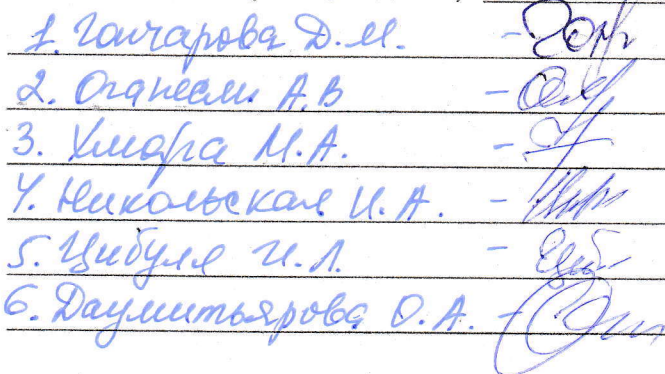 1. Гончарова Д.М. -
2. Оганесян А.В -
3. Хмара М.А. -
4. Никольская И.А. -
5. Цибуля И.Л. -
6. Даумитьярова О.А. -